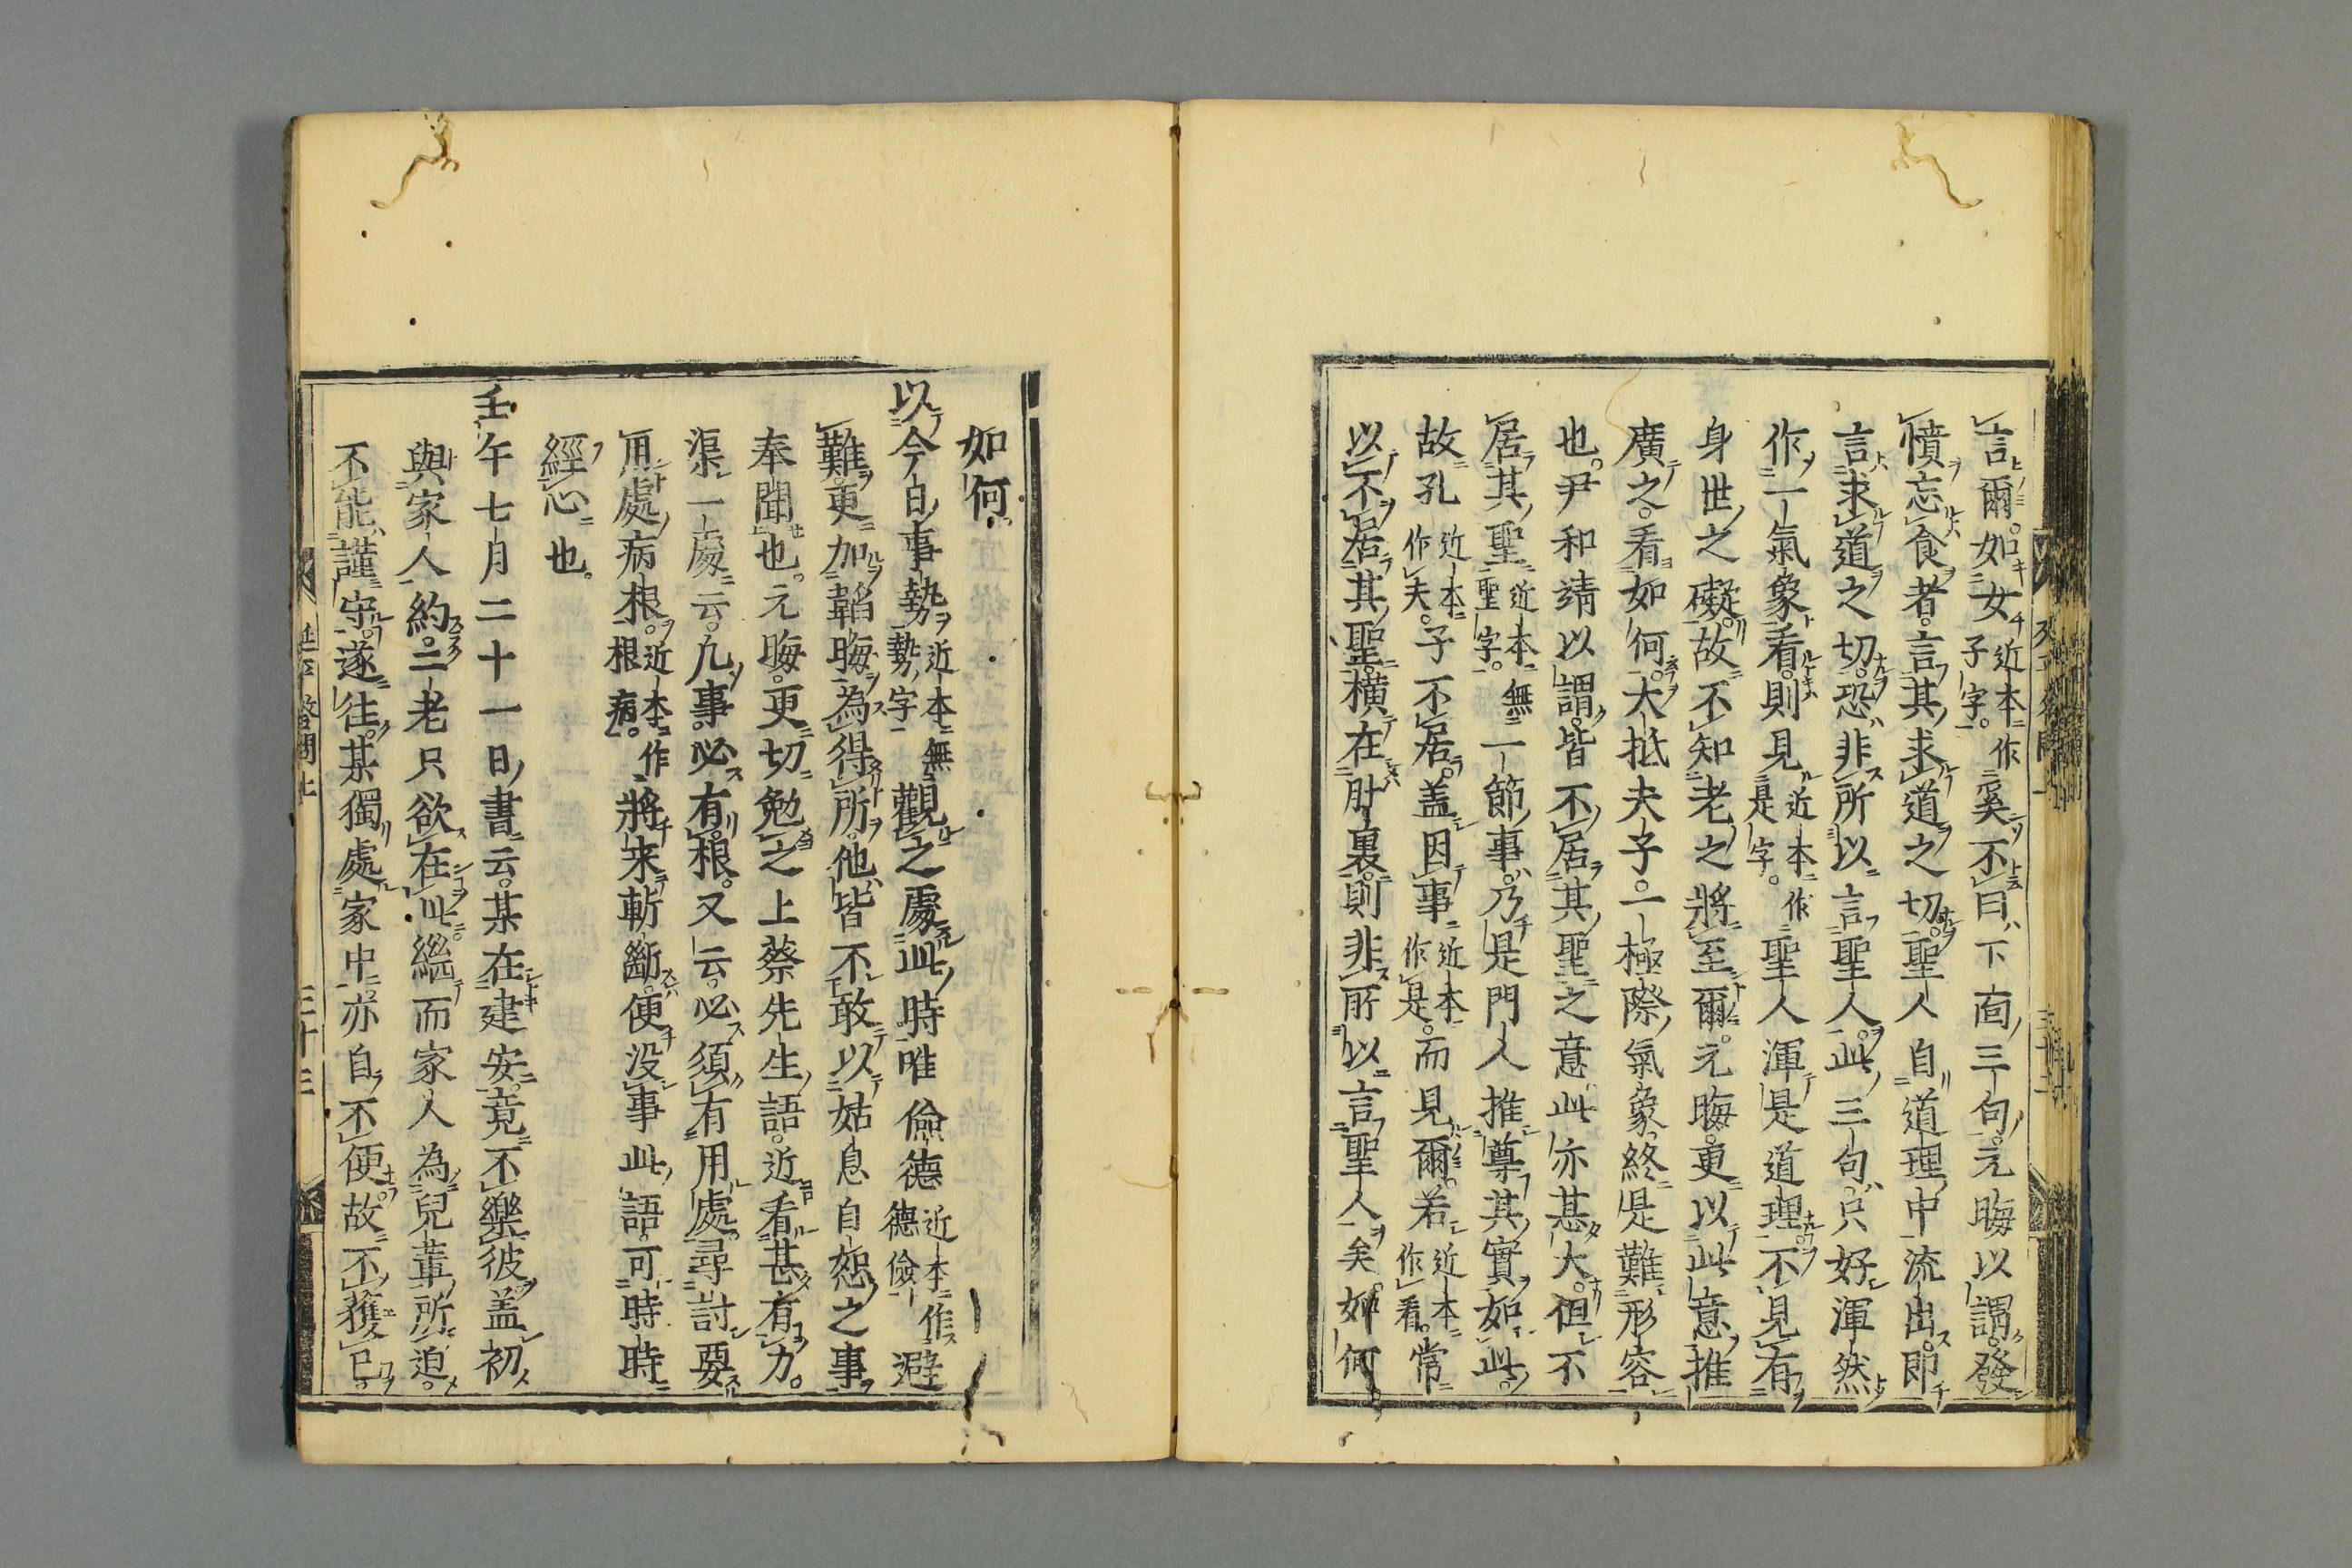 言爾。如女近本作子字。奚不曰、下面三句。元晦以謂。發
憤忘食者。言其求道之切。聖人自道理中流出。即
言求道之切。恐非所以言聖人。此三句。只好渾然
作一氣象看。則見近本作是字。聖人渾是道理。不見有
身世之礙。故不知老之將至爾。元晦。更以此意推
廣之。看如何。大抵夫子。一極際氣象。終是難形容
也。尹和靖以謂。皆不居其聖之意。此亦甚大。但不
居其聖近本無聖字。一節事。乃是門人推尊其實如此。
故孔近本作夫。子不居。盖因事近本作是。而見爾。若近本作看。常
以不居其聖横在肚裏。則非所以言聖人矣。如何。
如何。
以今日事勢近本無勢字觀之處此時唯儉德近本作德儉避
難。更加韜晦為得所。他皆不敢以姑息自恕之事
奉聞也。元晦。更切勉之上蔡先生語。近看甚有力。
渠一處云。凡事。必有根。又云。必須有用處。尋討要
用處病根。近本作根病。將来斬斷。便没事此語。可時時
經心也。
壬午七月二十一日書云。某在建安。竟不樂彼盖初
與家人約。二老只欲在此。繼而家人為兒輩所迫。
不能謹守。遂往。某獨處家中。亦自不便故。不獲已。
延平答問上
三十三